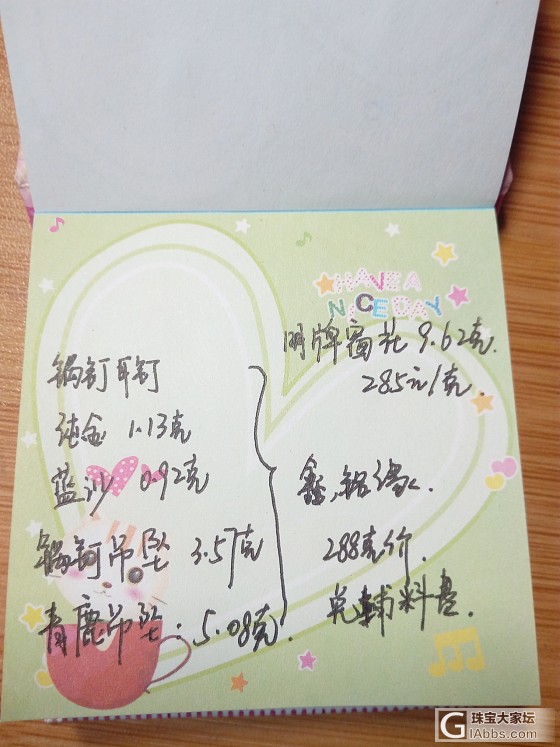 HAVE A
NICE DAY
明牌窗花 9.62克.
285元/克.
锔钉耳钉
纯金 1.13克
蓝沙 0.92克
锔钉吊坠 3.57克
青鹿吊坠. 5.08克.
鑫铭缘.
288克价.
免辅料费.
珠宝大家坛
GIAbbs.com